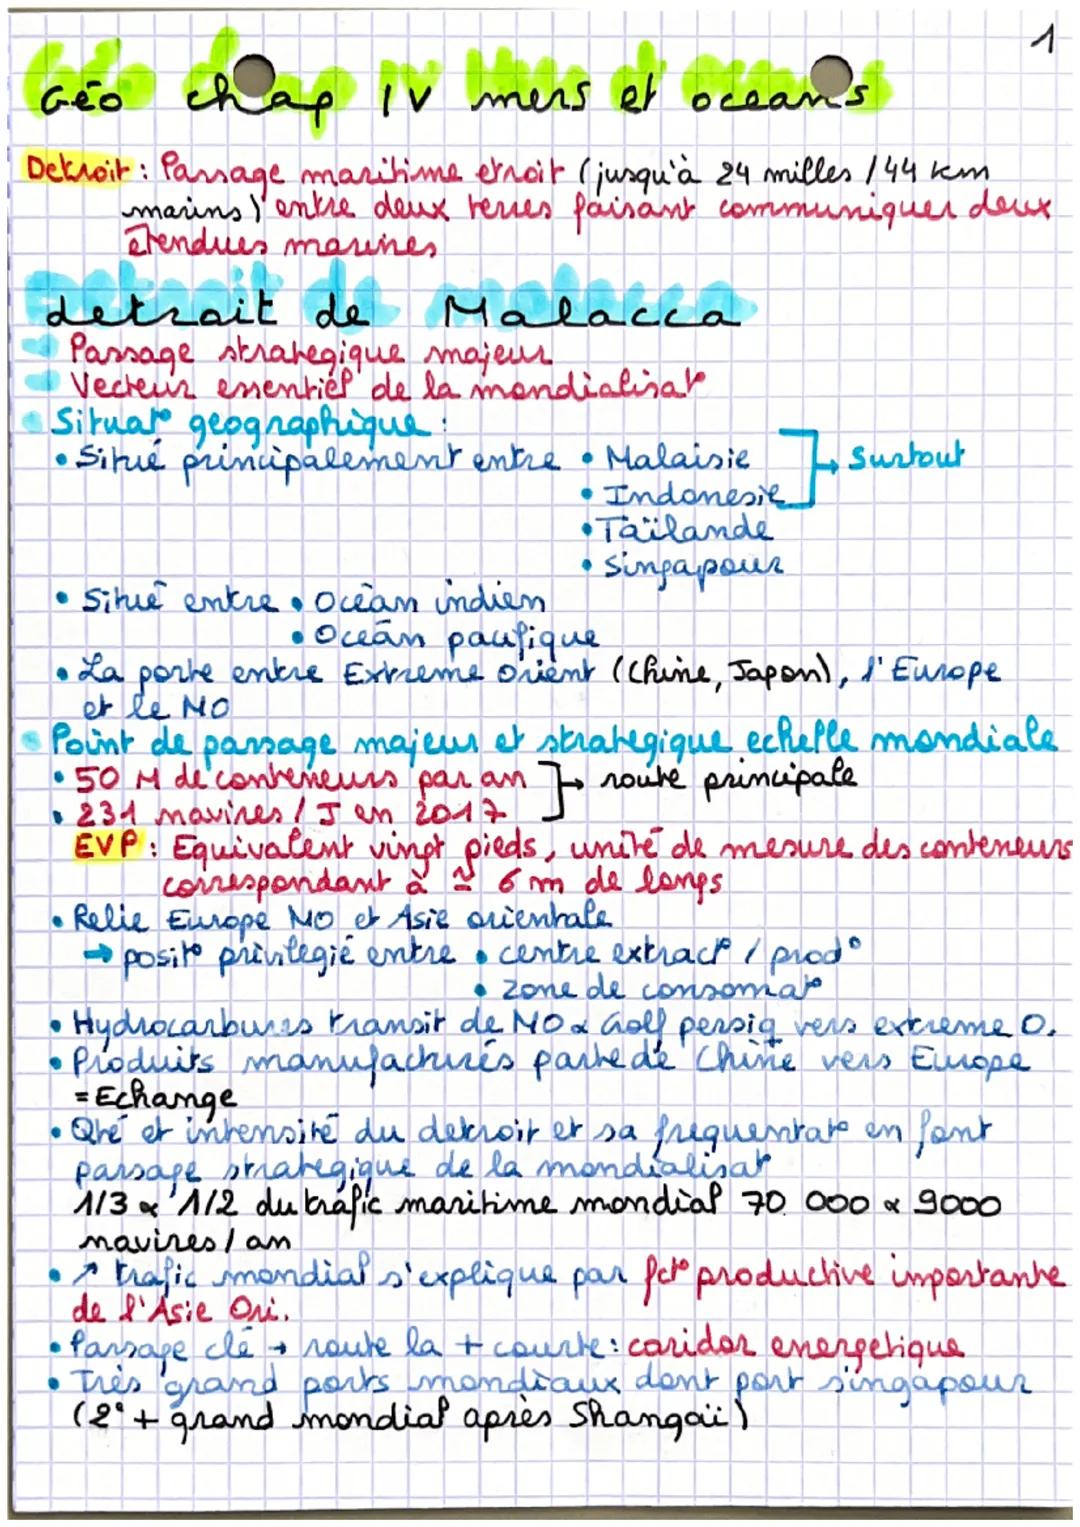 1
Géo chap IV mers et oceans
Detroit : Passage maritime etroit (jusqu'à 24 milles / 44 km
marins) entre deux terres faisant communiquer deux
étendues marines
detroit de Malacca
Passage strategique majeur
Vecteur essentiel de la mondialisat°
Situat° geographique :
• Situé principalement entre • Malaisie
• Indonesie
→ Surtout
• Taïlande
• Singapour
• Situé entre • Océan indien
• Océan pacifique
• La porte entre Extreme Orient (Chine, Japon), l'Europe
et le MO
Point de passage majeur et strategique echelle mondiale
• 50 M de conteneurs par an
• 231 navires / J en 2017
→ route principale
EVP : Equivalent vingt pieds, unité de mesure des conteneurs
correspondant à ≃ 6 m de longs
• Relie Europe MO et Asie orientale
→ posit° privilegié entre • centre extract° / prod°
• zone de consomat°
• Hydrocarbures transit de MO & Golf persiq vers extreme O.
• Produits manufacturés parte de Chine vers Europe
= Echange
• Qté et intensité du detroit et sa frequentat° en font
passage strategique de la mondialisat°
1/3 à 1/2 du trafic maritime mondial 70 000 à 9000
navires / an
• ↗ trafic mondial s'explique par fct° productive importante
de l'Asie Ori.
• Passage clé → route la + courte : coridor energetique
• Très grand ports mondiaux dont port singapour
(2° + grand mondial après Shangaïi)